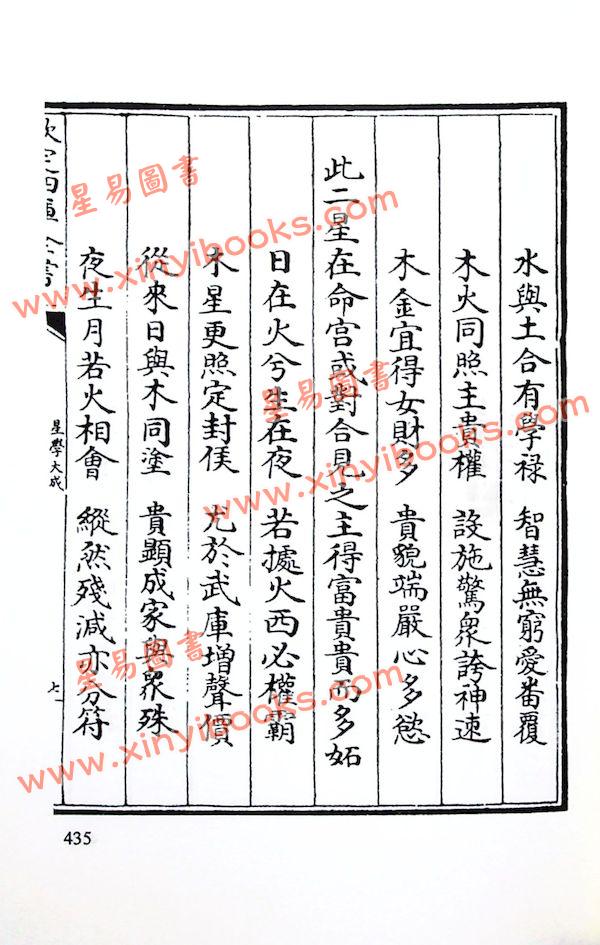 水與土合有學祿　智慧無窮愛畨覆
木火同照主貴權　設施驚衆誇神速
木金宜得女財多　貴貌端嚴心多慾
此二星在命宫或對合見之主得富貴貴而多妬
日在火兮生在夜　若㨿火西必權霸
木星更照定封侯　尤於武庫增聲價
從來日與木同塗　貴顯成家與衆殊
夜生月若火相會　縱然殘減亦分符
欽定四庫全書
星學大成
七
435
星易圖書
www.xinyibooks.com
星易圖書
www.xinyibooks.com
星易圖書
www.xinyibooks.com